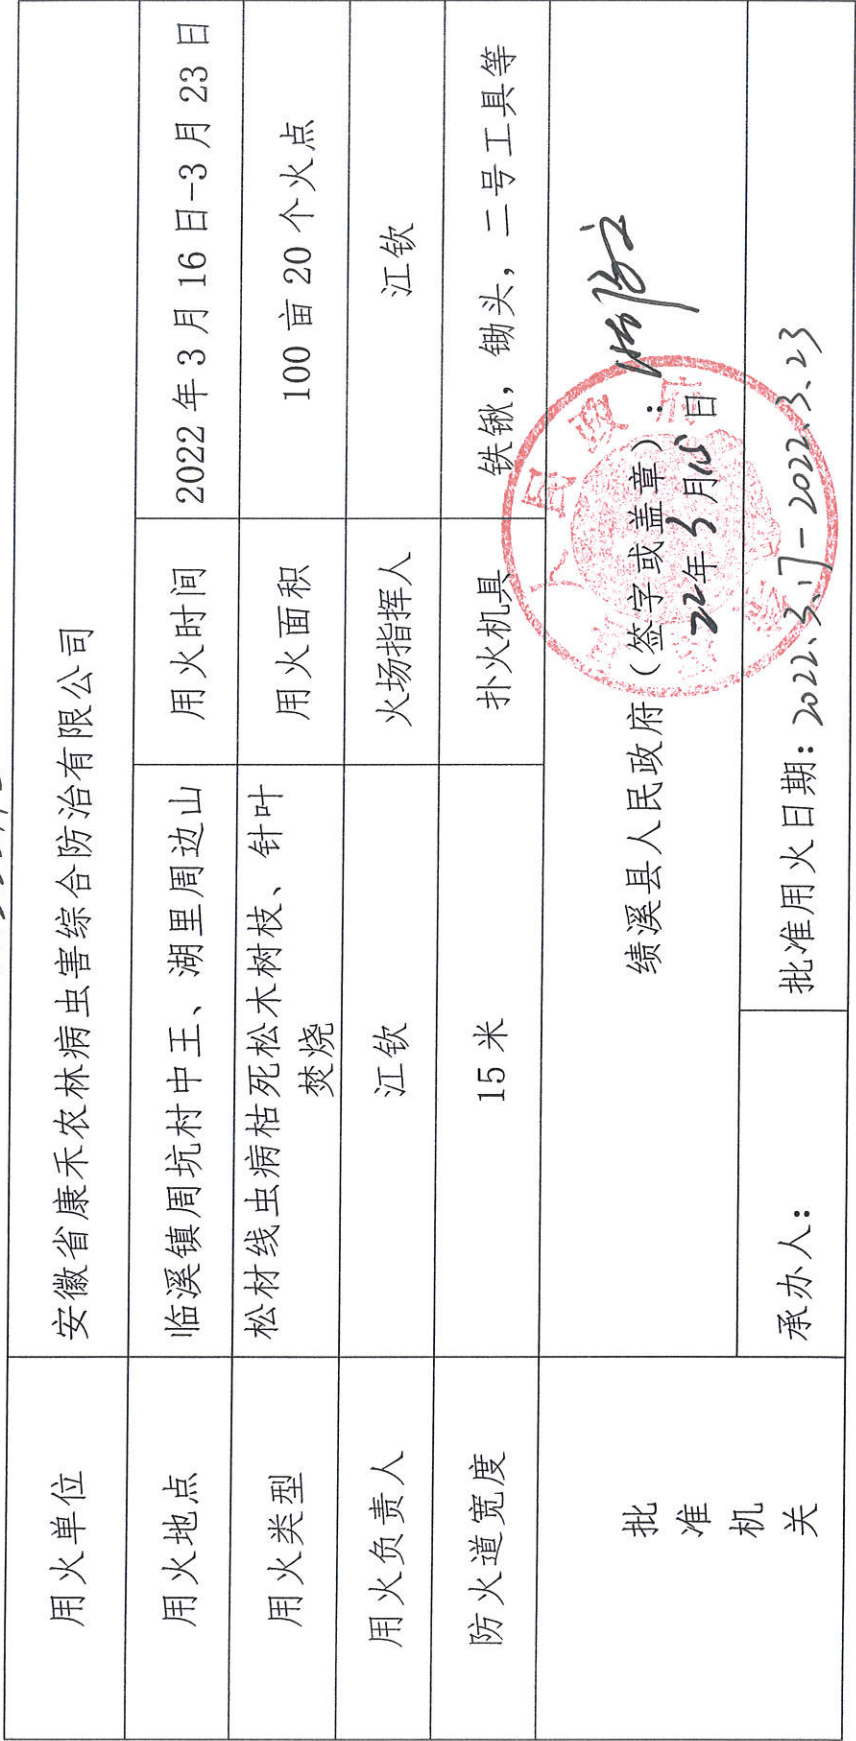 用火单位 安徽省康禾农林病虫害综合防治有限公司
用火地点 临溪镇周坑村中王、湖里周边山 用火时间 2022 年 3 月 16 日-3 月 23 日
用火类型 松材线虫病枯死松木树枝、针叶 用火面积 100 亩 20 个火点
焚烧
用火负责人 江钦 火场指挥人 江钦
防火道宽度 15 米 扑火机具 铁锹，锄头，二号工具等
批准机关
绩溪县人民政府（签字或盖章）：
22年3月15日
承办人： 批准用火日期：2022.3.17-2022.3.23
人民政府